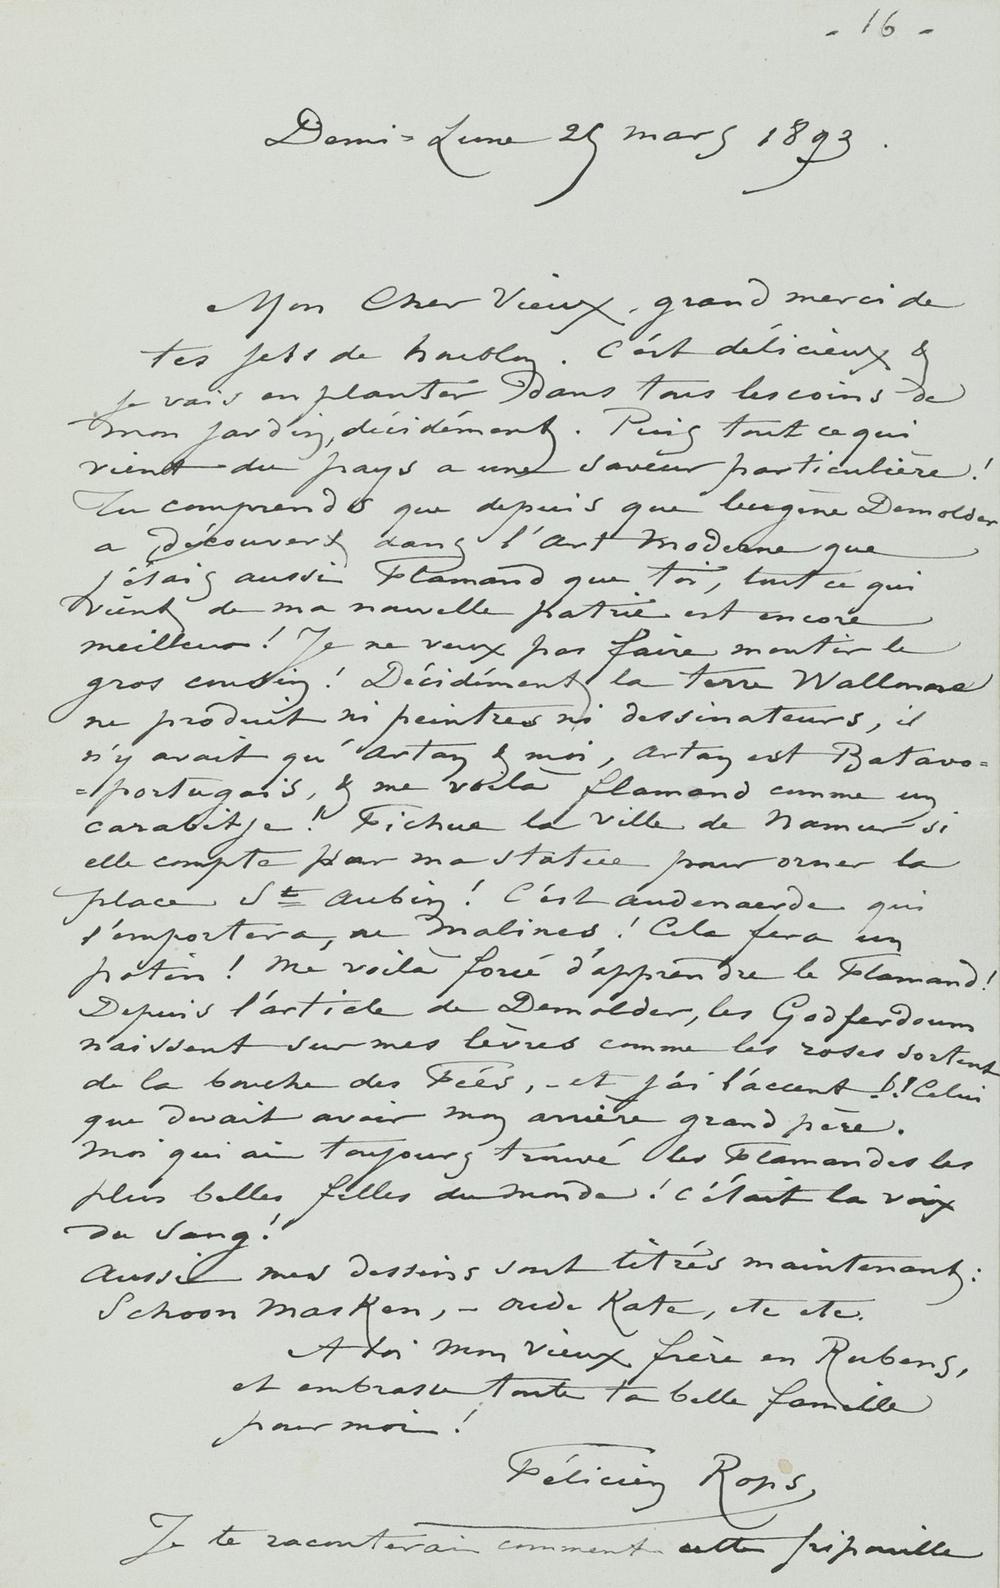 - 16 -
Demi=Lune 25 mars 1893.
Mon Cher Vieux, grand merci de
tes jets de houblon. C'est délicieux &
je vais en planter dans tous les coins de
mon jardin, décidément. Puis tout ce qui
vient du pays a une saveur particulière!
Tu comprends que depuis que Eugène Demolder
a découvert dans l'Art Moderne que
j'étais aussi Flamand que toi, tout ce qui
vient de ma nouvelle patrie est encore
meilleur! Je ne veux pas faire mentir le
gros cousin! Décidément la terre Wallonne
ne produit ni peintres ni dessinateurs, il
n'y avait qu'Artan & moi, Artan est Batavo=
=portugais, & me voilà flamand comme un
carabitje! Fichue la ville de Namur si
elle compte sur ma statue pour orner la
place St Aubin! C'est Audenaerde qui
l'emportera, ou Malines! Cela fera un
potin! Me voilà forcé d'apprendre le Flamand!
Depuis l'article de Demolder, les Godferdoum
naissent sur mes lèvres comme les roses sortent
de la bouche des Fées, - et j'ai l'accent!! Celui
que devait avoir mon arrière grand père.
Moi qui ai toujours trouvé les Flamandes les
plus belles filles du monde! C'était la voix
du sang!
Aussi mes dessins sont titrés maintenant:
Schoon Masken, - oude Kate, etc etc.
A toi mon vieux frère en Rubens,
et embrasse toute ta belle famille
pour moi!
Félicien Rops,
Je te raconterai comment cette fripouille